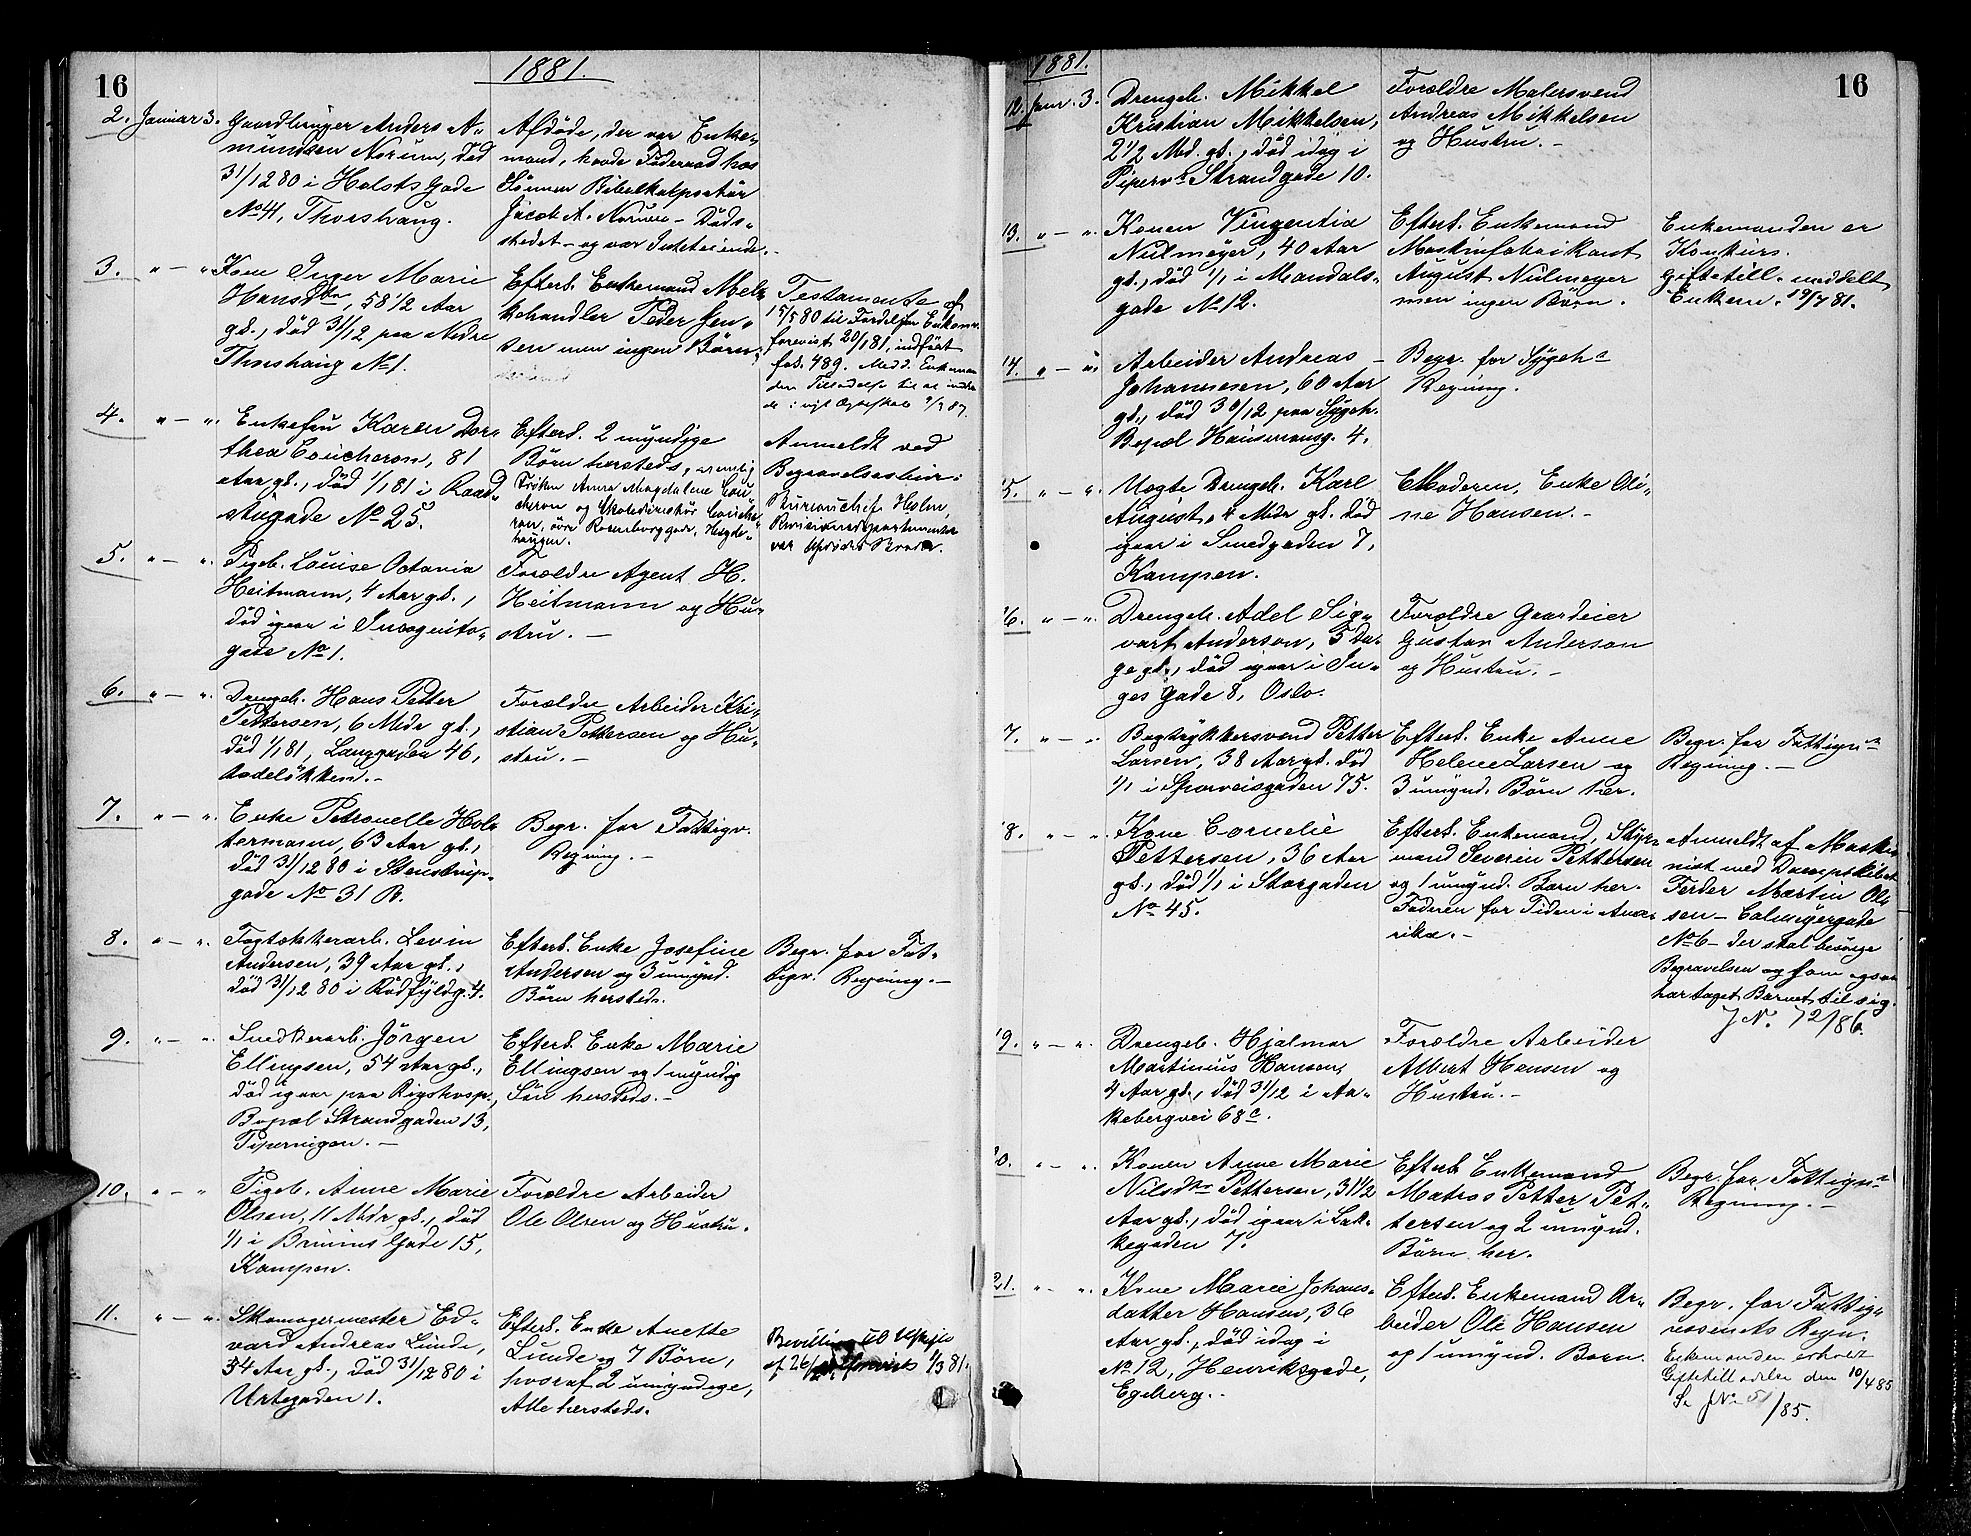 16
1881.
2. Januar 3. Gaardbruger Anders A-
mundsen Norum, død
31/12 80 i Holsts Gade
No 41, Thorshaug.
Afdøde, der var Enke-
mand, havde Føderaad hos
Sønnen Bibelkolportør
Jacob A. Norum - Døds-
stedet - og var Intet eiende.-
3. " - " Kone Inger Marie
Hansdtr, 58 1/2 Aar
gl., død 31/12 paa Nedre
Thorshaug No 1.
Efterl. Enkemand Mel-
handler Peder Jen-
sen men ingen Børn.
Testamente af
15/5 80 til Fordel for Enkem.
forevist 20/1 81, indført
fol. 489. Medd. Enkeman
den Tilladelse til at indtræ
de i nyt Ægteskab 9/7 87.
4. " - ". Enkefru Karen Dor-
thea Coucheron, 81
Aar gl., død 1/1 81 i Raad-
stugade No 25.
Efterl. 2 myndige
Børn hersteds, nemlig
Frøken Anna Magdalene Cou-
cheron og Skoledirektør Couche-
ron, øvre Rosenborggade, Hægde-
haugen.
Anmeldt ved
Begravelsesbur:
Bureauchef Holm,
Revisionsdepartementet
var Afdødes Broder.
5. " - ". Pigeb. Louise Octavia
Heitmann, 4 Aar gl.,
død igaar i Incognito-
gade No 1.
Forældre Agent H.
Heitmann og Hu-
stru. -
6. " - ". Drengeb. Hans Petter
Pettersen, 6 Mdr gl.,
død 1/1 81, Langgaden 46,
Rodeløkken.-
Forældre Arbeider Kri-
stian Pettersen og Hu-
stru. -
7. " - ". Enke Petronelle Hol-
termann, 63 Aar gl.,
død 31/12 80 i Stenstrup-
gade No 31 B.
Begr. for Fattigv.
Regning. -
8. " - ". Tagtækkerarb. Levin
Andersen, 39 Aar gl.,
død 31/12 80 i Rødfyldg. 4.
Efterl. Enke Josefine
Andersen og 3 umynd.
Børn hersteds.
Begr. for Fat-
tigv. Regning. -
9. " - ". Snedkerarb. Jørgen
Ellingsen, 54 Aar gl.,
død igaar paa Rigshosp.,
Bopæl Strandgaden 13,
Pipervigen. -
Efterl. Enke Marie
Ellingsen og 1 myndig
Søn hersteds. -
10. " - " Pigeb. Anne Marie
Olsen, 11 Mdr gl., død
1/1 i Bruuns Gade 15,
Kampen.
Forældre Arbeider
Ole Olsen og Hustru.
11. " - ". Skomagermester Ed-
vard Andreas Lunde,
54 Aar gl., død 31/12 80 i
Urtegaden 1.
Efterl. Enke Anette
Lunde og 7 Børn,
hvoraf 2 umyndige,
Alle hersteds.
Bevilling til Uskifte
af 26/ forevist 1/3 81.
1881.
16
12. Janr. 3. Drengeb. Mikkel
Kristian Mikkelsen,
2 1/2 Md. gl., død idag i
Piperv. Strandgade 10.
Forældre Malersvend
Andreas Mikkelsen
og Hustru. -
13. " - ". Konen Vingentia
Nulmeyer, 40 Aar
gl., død 1/1 i Mandals-
gade No 12.
Efterl. Enkemand
Maskinfabrikant
August Nulmeyer
men ingen Børn.
Enkemanden er
Konkurs.
Giftetill. meddelt
Enkem. 19/7 81.
14. " - " Arbeider Andreas
Johannesen, 60 Aar
gl., død 30/12 paa Sygeh.
Bopæl Hausmansg. 4.
Begr. for Sygeh.
Regning.
15. " - ". Uægte Drengeb. Karl
August, 4 Mdr gl. død
igaar i Smedgaden 7,
Kampen.
Moderen, Enke Oli-
ne Hansen. -
16. " - ". Drengeb. Adel Sig-
vart Anderson, 5 Da-
ge gl., død igaar i In-
ges Gade 8, Oslo.
Forældre Gaardeier
Gustav Anderson
og Hustru. -
7. " - " Bogtrykkersvend Petter
Larsen, 38 Aar gl. død
1/1 i Sporveisgaden 75.
Efterl. Enke Anne
Helene Larsen og
3 umynd. Børn her.
Begr. for Fattigv.
Regning. -
18. " - ". Kone Cornelie
Pettersen, 36 Aar
gl., død 1/1 i Storgaden
No 45.
Efterl. Enkemand, Styr-
mand Severin Pettersen
og 1 umynd. Barn her.
Faderen for Tiden i Ame-
rika. -
Anmeldt af Maski-
nist med Dampskibet
Færder Martin Ol-
sen - Calmeyergade
No 6 - der skal besørge
Begravelsen og som ogsaa
har taget Barnet til sig.
J No. 72/86.
19. " - ". Drengeb. Hjalmar
Martinius Hansen,
4 Aar gl., død 31/12 i Aa-
kebergvei 68 c.
Forældre Arbeider
Albert Hansen og
Hustru. -
20. " - ". Konen Anne Marie
Nilsdtr Pettersen, 31 1/2
Aar gl., død igaar i Lak-
kegaden 7.
Efterl. Enkemand
Matros Petter Pet-
tersen og 2 umynd.
Børn her.
Begr. for Fattigv.
Regning. -
21. " - ". Kone Marie Johans-
datter Hansen, 36
Aar gl., død idag i
No 12, Henriksgade,
Egeberg. -
Efterl. Enkemand Ar-
beider Ole Hansen
og 1 umynd. Barn.
Begr. for Fattig-
væsenets Regn.
Enkemanden erholdt
Giftetilladelse den 10/4 85
Se J No 51/85.